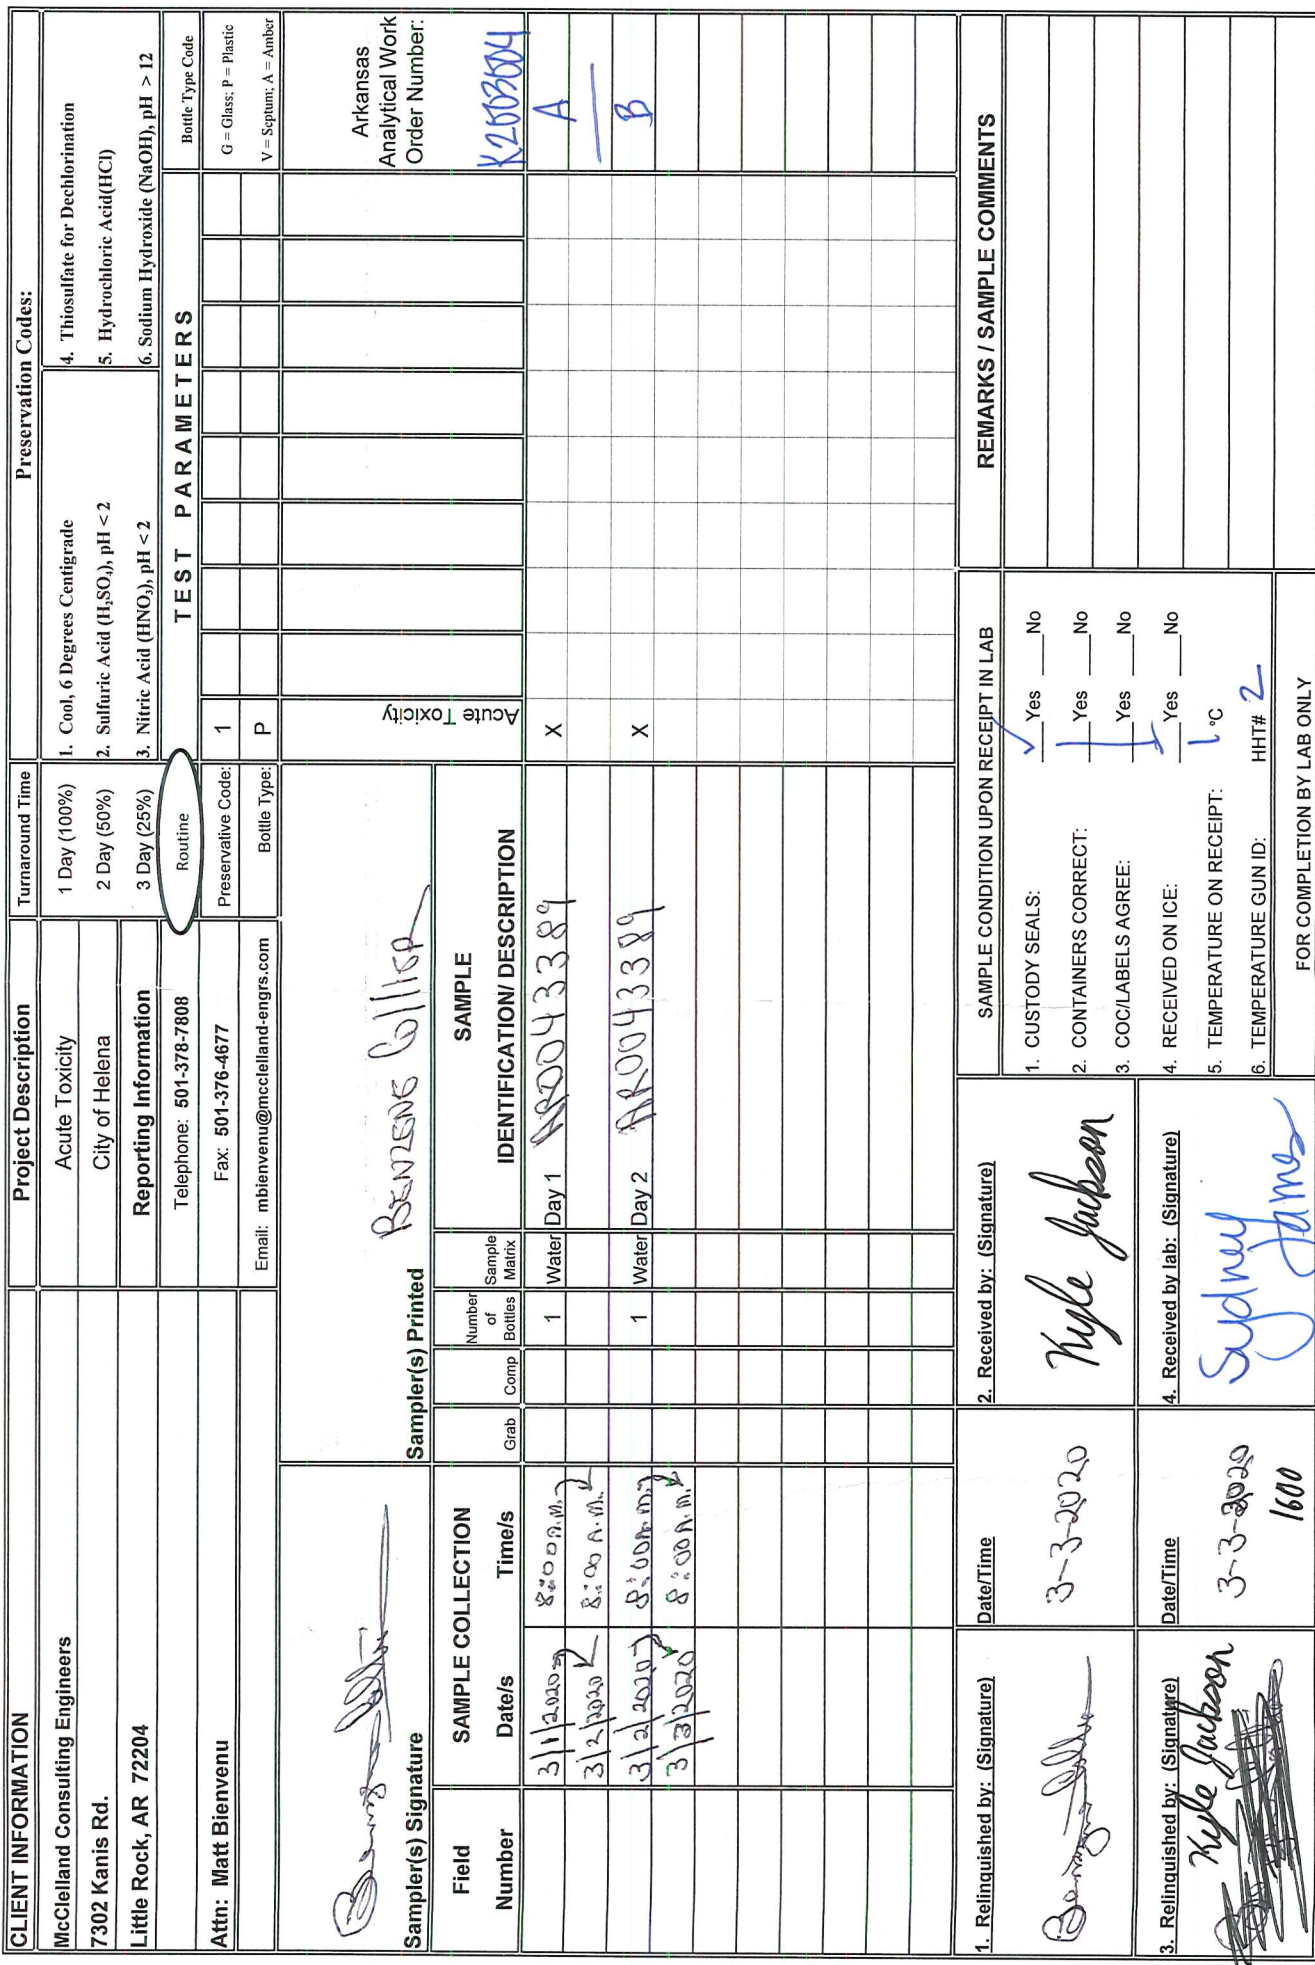 CLIENT INFORMATION
McClelland Consulting Engineers
7302 Kanis Rd.
Little Rock, AR 72204
Attn: Matt Bienvenu
Project Description
Acute Toxicity
City of Helena
Reporting Information
Telephone: 501-378-7808
Fax: 501-376-4677
Email: mbienvenu@mcclelland-engrs.com
Turnaround Time
1 Day (100%)
2 Day (50%)
3 Day (25%)
Routine
Preservation Codes:
1. Cool, 6 Degrees Centigrade
2. Sulfuric Acid (H₂SO₄), pH < 2
3. Nitric Acid (HNO₃), pH < 2
4. Thiosulfate for Dechlorination
5. Hydrochloric Acid(HCl)
6. Sodium Hydroxide (NaOH), pH > 12
TEST PARAMETERS
Bottle Type Code
Preservative Code: 1
G = Glass; P = Plastic
Bottle Type: P
V = Septum; A = Amber
Sampler(s) Signature
Sampler(s) Printed
BENZENE Collier
Acute Toxicity
Arkansas
Analytical Work
Order Number:
K2003604
Field
Number
SAMPLE COLLECTION
Date/s Time/s
Grab Comp
Number
of
Bottles
Sample
Matrix
SAMPLE
IDENTIFICATION/ DESCRIPTION
3/1/2020 8:00 A.M. 1 Water Day 1 AR0043389 X A
3/2/2020 8:00 A.M.
3/2/2020 8:00 A.M. 1 Water Day 2 AR0043389 X B
3/3/2020 8:00 A.M.
1. Relinquished by: (Signature)
Date/Time
3-3-2020
2. Received by: (Signature)
Kyle Jackson
3. Relinquished by: (Signature)
Kyle Jackson
Date/Time
3-3-2020
1600
4. Received by lab: (Signature)
Sydney
James
SAMPLE CONDITION UPON RECEIPT IN LAB
1. CUSTODY SEALS: ✓ Yes ___No
2. CONTAINERS CORRECT: ___Yes ___No
3. COC/LABELS AGREE: ___Yes ___No
4. RECEIVED ON ICE: ___Yes ___No
5. TEMPERATURE ON RECEIPT: 1 °C
6. TEMPERATURE GUN ID: HHT# 2
FOR COMPLETION BY LAB ONLY
REMARKS / SAMPLE COMMENTS